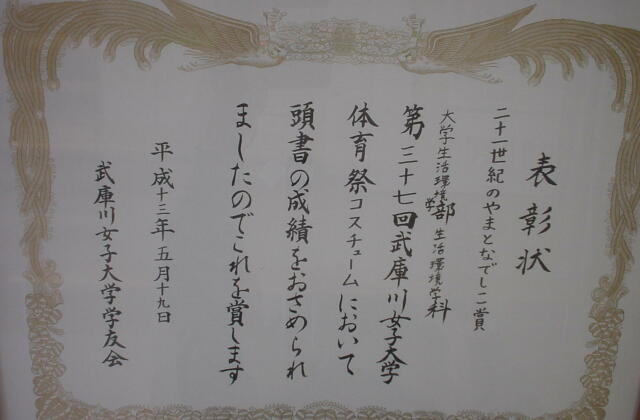 表彰状
二十一世紀のやまとなでしこ賞
大学生活環境学部生活環境学科
第三十七回武庫川女子大学
体育祭コスチュームにおいて
頭書の成績をおさめられ
ましたのでこれを賞します
平成十三年五月十九日
武庫川女子大学学友会